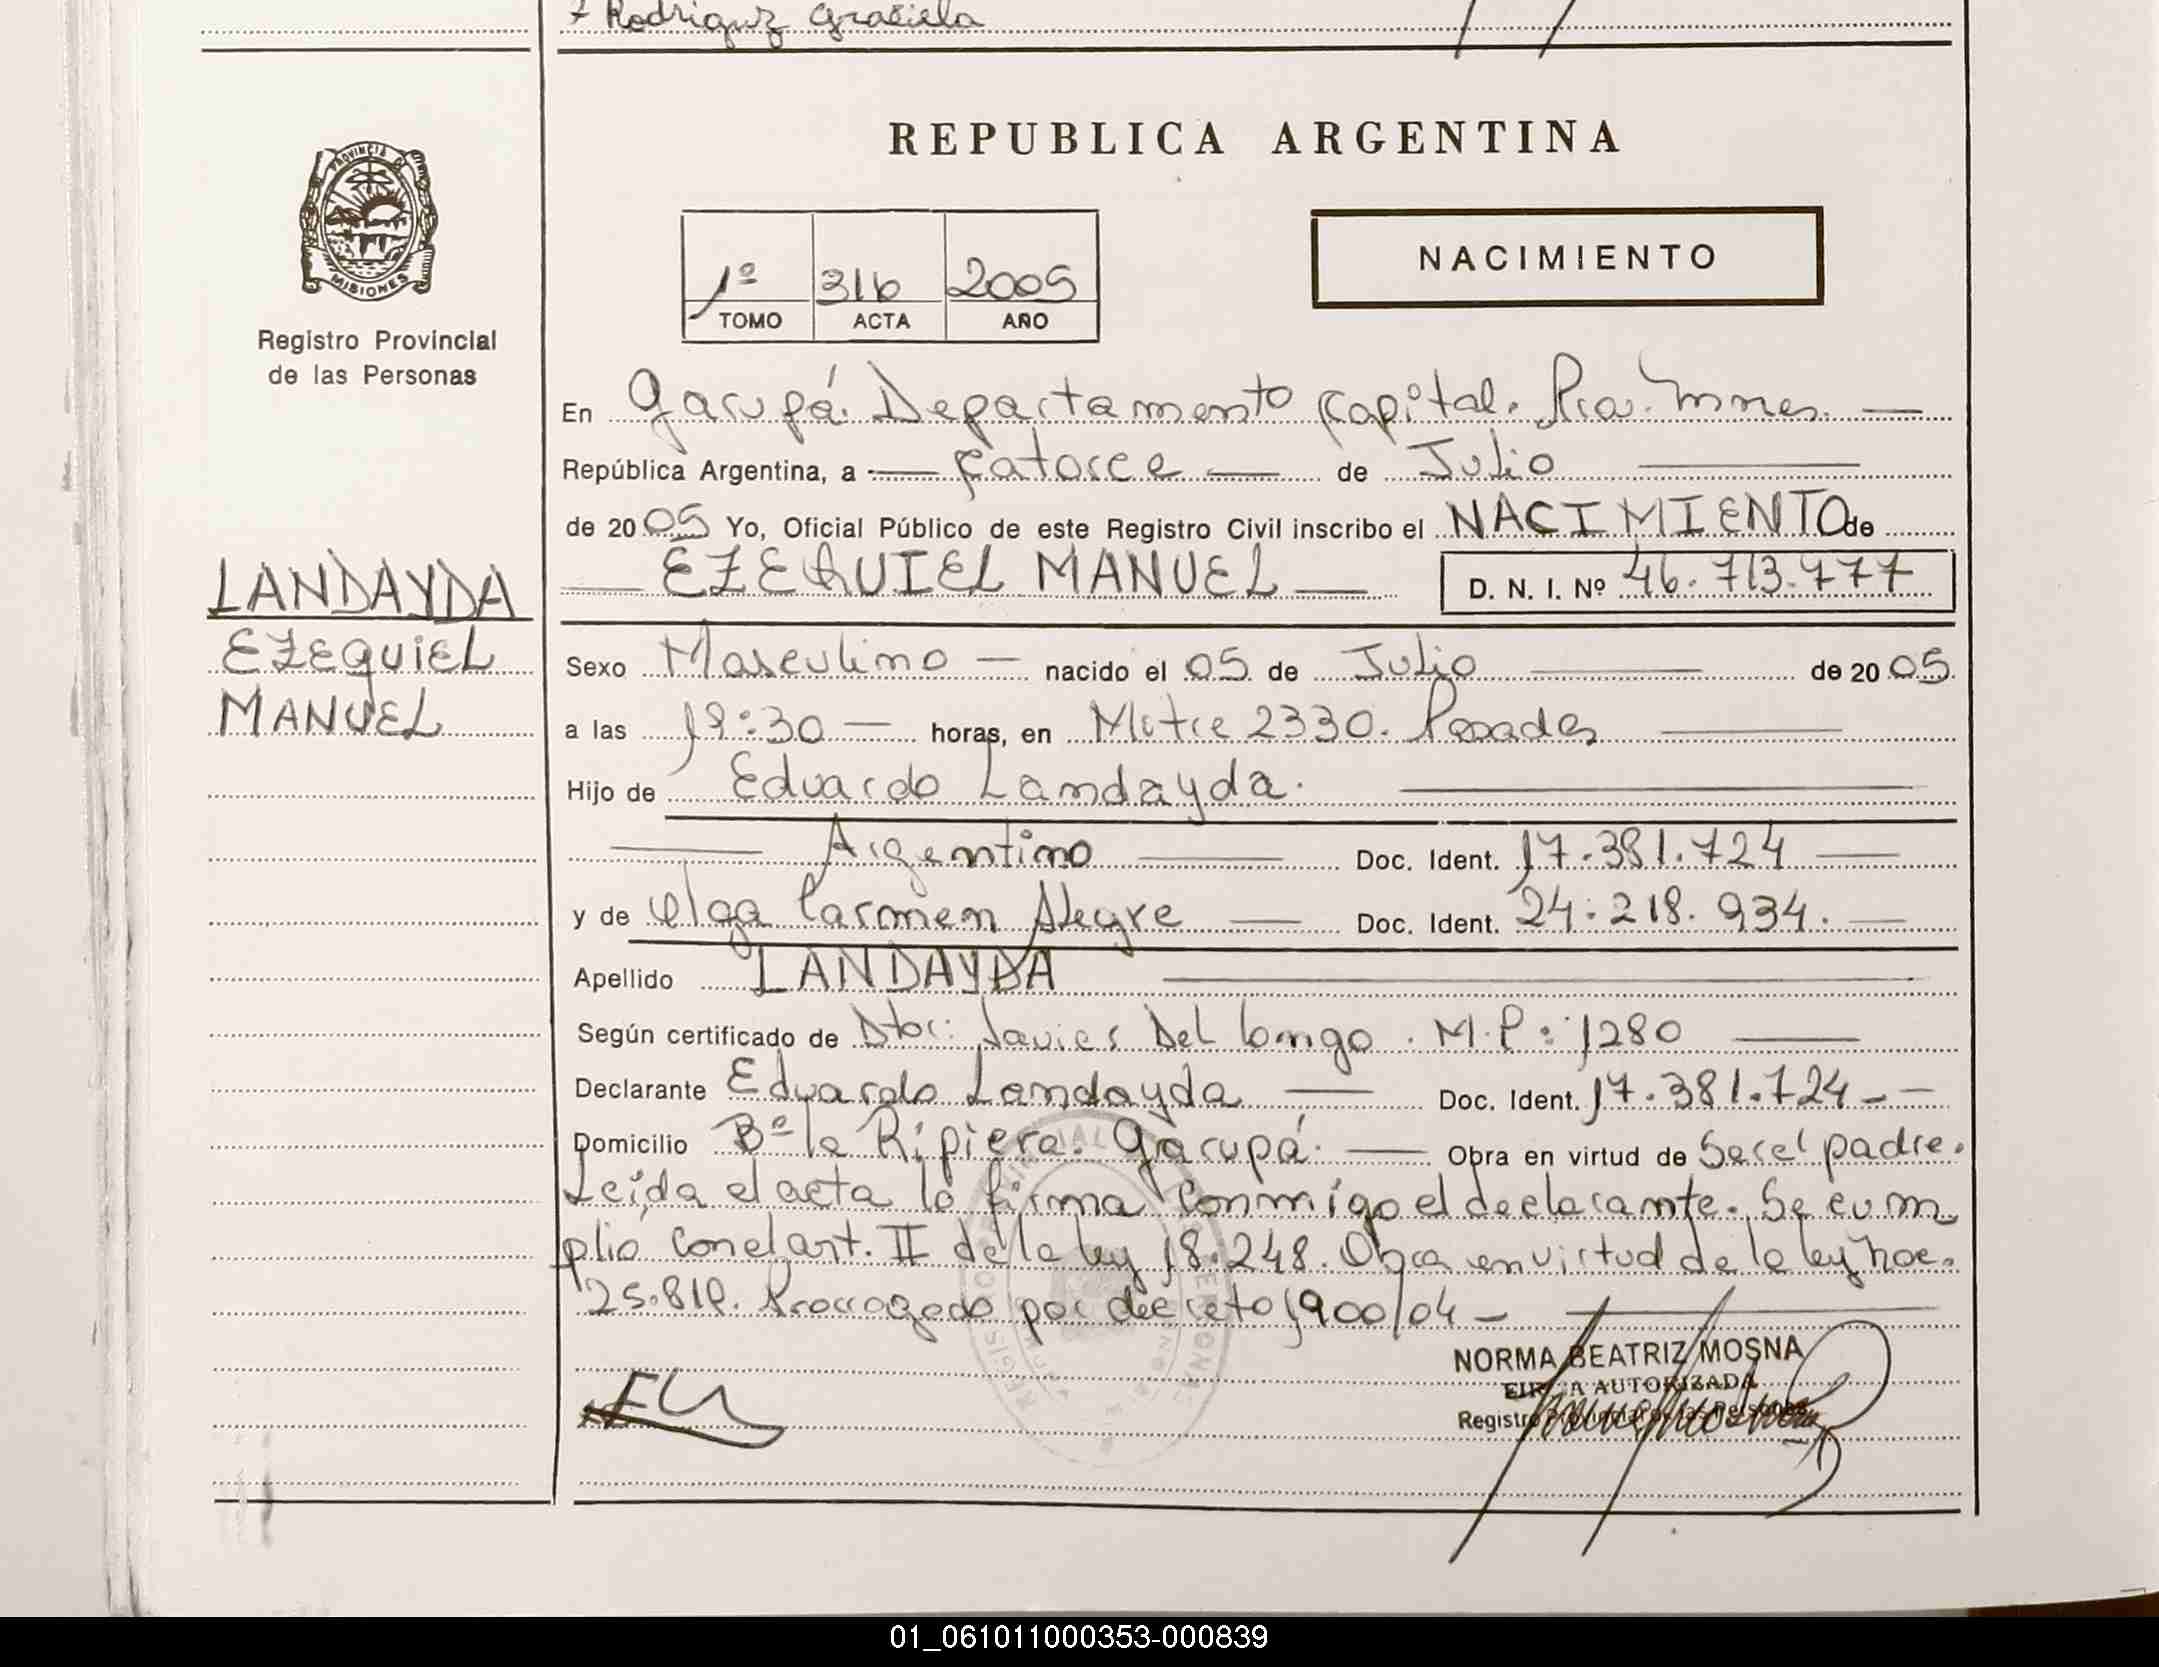 Rodriguz Graciela
REPUBLICA ARGENTINA
PROVINCIA D
MISIONES
Registro Provincial
de las Personas
1º 316 2005
TOMO ACTA AÑO
NACIMIENTO
En Garupá. Departamento Capital. Pcia. Mnes. —
República Argentina, a — Catorce — de Julio —
de 2005 Yo, Oficial Público de este Registro Civil inscribo el NACIMIENTO de
— EZEQUIEL MANUEL — D. N. I. Nº 46.713.777
LANDAYDA
EZEQUIEL
MANUEL
Sexo Masculino — nacido el 05 de Julio — de 2005.
a las 19:30 — horas, en Mitre 2330. Posadas —
Hijo de Eduardo Landayda. —
— Argentino — Doc. Ident. 17.381.724 —
y de Olga Carmen Alegre — Doc. Ident. 24.218.934. —
Apellido LANDAYDA —
Según certificado de Dtor: Javier Del Longo. M.P: 1280 —
Declarante Eduardo Landayda — Doc. Ident. 17.381.724 - —
Domicilio Bº la Ripiera. Garupá. — Obra en virtud de Ser el padre.
Leída el acta la firma conmigo el declarante. Se cum
plió con el art. II de la ley 18.248. Obra en virtud de la ley nac.
25.819. Prorrogado por decreto 1900/04 - —
NORMA BEATRIZ MOSNA
FIRMA AUTORIZADA
Registro Provincial de las Personas
EL
01_061011000353-000839